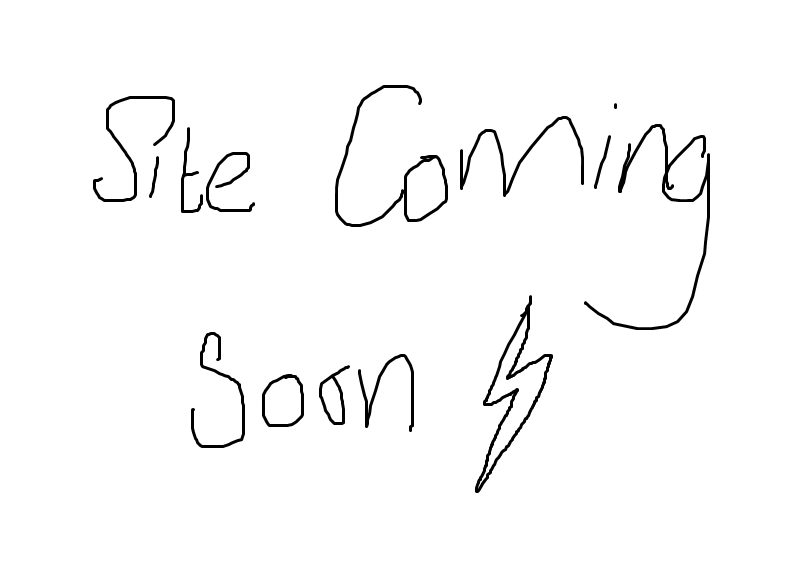 Site Coming
Soon